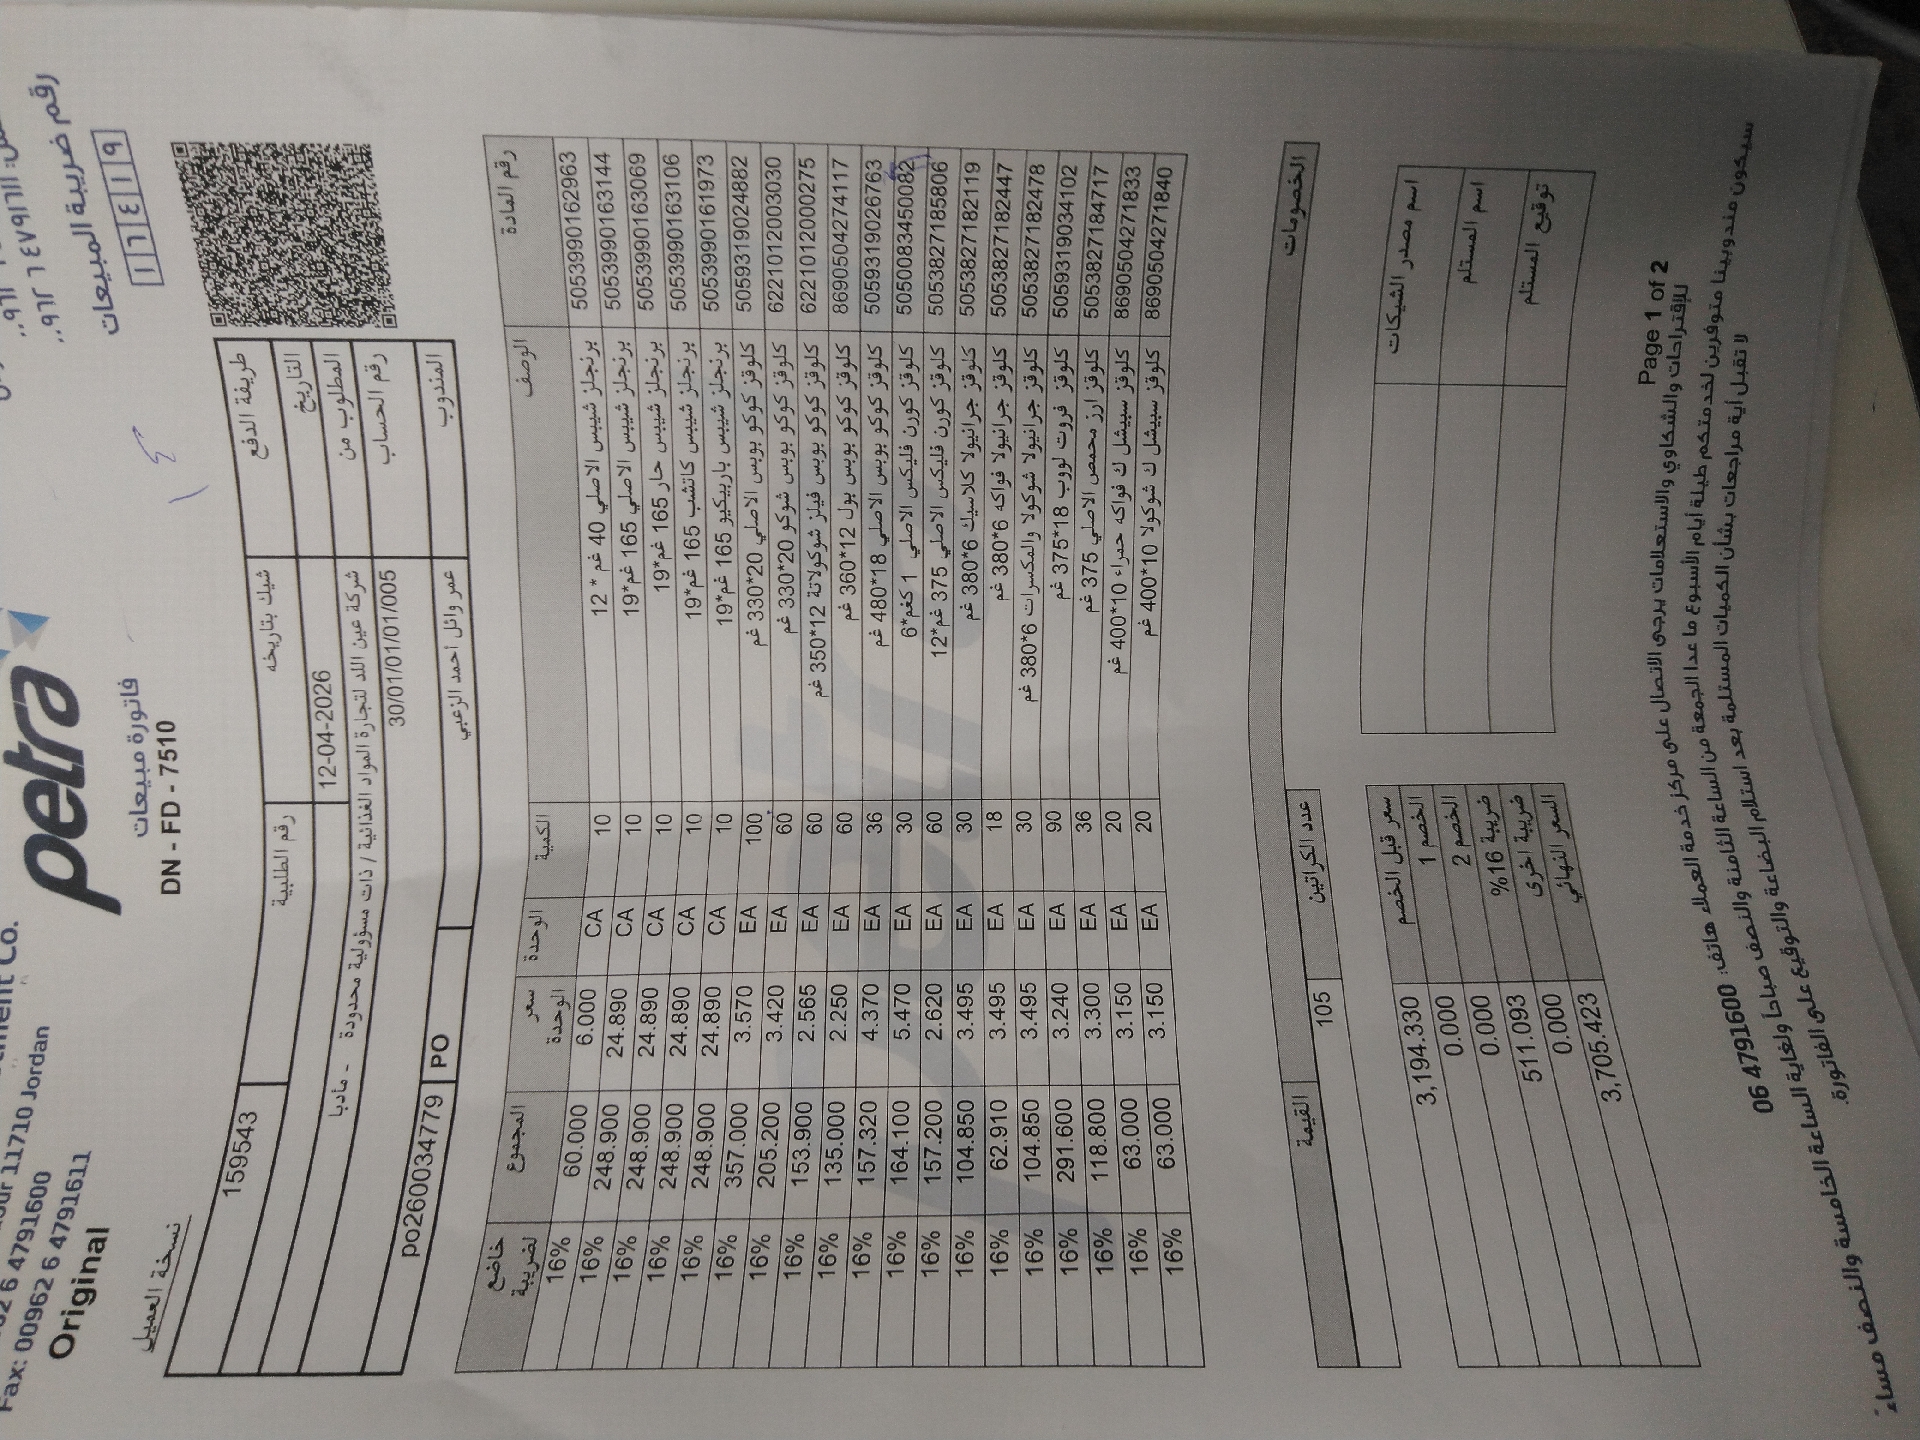 رقم ضريبة المبيعات
١ ٦ ٤ ١ ٩
petra
فاتورة مبيعات
DN - FD - 7510
11710 Jordan
6 4791600
Fax: 00962 6 4791611
Original
نسخة العميل
طريقة الدفع شيك بتاريخه رقم الطلبية 159543
التاريخ 12-04-2026
المطلوب من شركة عين اللد لتجارة المواد الغذائية / ذات مسؤولية محدودة - مادبا
رقم الحساب 30/01/01/01/005
المندوب عمر وائل احمد الزعبي PO po2600034779
رقم المادة الوصف الكمية الوحدة سعر الوحدة المجموع خاضع لضريبة
5053990162963 برنجلز شيبس الاصلي 40 غم * 12 10 CA 6.000 60.000 16%
5053990163144 برنجلز شيبس الاصلي 165 غم*19 10 CA 24.890 248.900 16%
5053990163069 برنجلز شيبس حار 165 غم*19 10 CA 24.890 248.900 16%
5053990163106 برنجلز شيبس كاتشب 165 غم*19 10 CA 24.890 248.900 16%
5053990161973 برنجلز شيبس باربيكيو 165 غم*19 10 CA 24.890 248.900 16%
5059319024882 كلوقز كوكو بوبس الاصلي 20*330 غم 100 EA 3.570 357.000 16%
6221012003030 كلوقز كوكو بوبس شوكو 20*330 غم 60 EA 3.420 205.200 16%
6221012000275 كلوقز كوكو بوبس فيلز شوكولاتة 12*350 غم 60 EA 2.565 153.900 16%
8690504274117 كلوقز كوكو بوبس بول 12*360 غم 60 EA 2.250 135.000 16%
5059319026763 كلوقز كوكو بوبس الاصلي 18*480 غم 36 EA 4.370 157.320 16%
5050083450082 كلوقز كورن فليكس الاصلي 1 كغم*6 30 EA 5.470 164.100 16%
5053827185806 كلوقز كورن فليكس الاصلي 375 غم*12 60 EA 2.620 157.200 16%
5053827182119 كلوقز جرانيولا كلاسيك 6*380 غم 30 EA 3.495 104.850 16%
5053827182447 كلوقز جرانيولا فواكه 6*380 غم 18 EA 3.495 62.910 16%
5053827182478 كلوقز جرانيولا شوكولا والمكسرات 6*380 غم 30 EA 3.495 104.850 16%
5059319034102 كلوقز فروت لووب 18*375 غم 90 EA 3.240 291.600 16%
5053827184717 كلوقز ارز محمص الاصلي 375 غم 36 EA 3.300 118.800 16%
8690504271833 كلوقز سبيشل ك فواكه حمراء 10*400 غم 20 EA 3.150 63.000 16%
8690504271840 كلوقز سبيشل ك شوكولا 10*400 غم 20 EA 3.150 63.000 16%
الخصومات عدد الكراتين القيمة
105
اسم مصدر الشيكات
اسم المستلم
توقيع المستلم
سعر قبل الخصم 3,194.330
الخصم 1 0.000
الخصم 2 0.000
ضريبة 16% 511.093
ضريبة اخرى 0.000
السعر النهائي 3,705.423
Page 1 of 2
للإقتراحات والشكاوي والاستعلامات يرجى الاتصال على مركز خدمة العملاء هاتف: 06 4791600
سيكون مندوبينا متوفرين لخدمتكم طيلة أيام الأسبوع ما عدا الجمعة من الساعة الثامنة والنصف صباحا ولغاية الساعة الخامسة والنصف مساءً
لا تقبل أية مراجعات بشأن الكميات المستلمة بعد استلام البضاعة والتوقيع على الفاتورة.